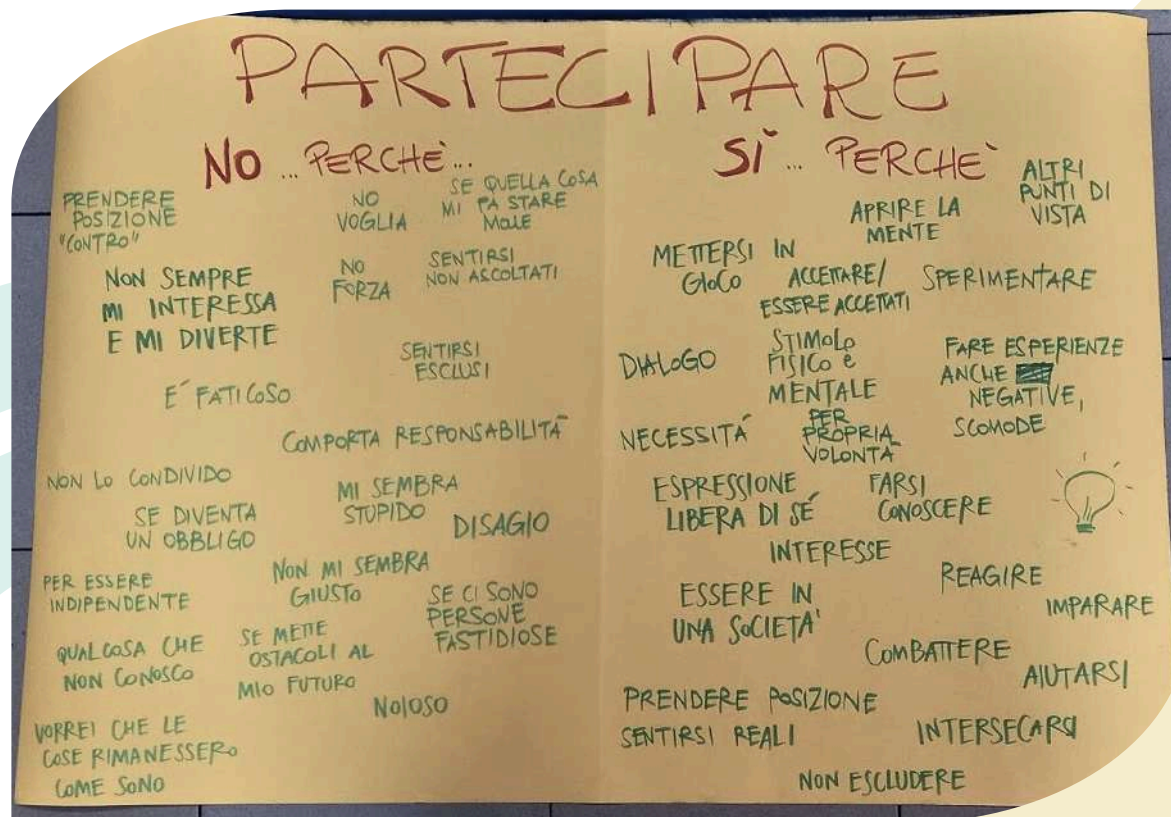 PARTECIPARE
NO ... PERCHÈ...
PRENDERE
POSIZIONE
"CONTRO"
NO
VOGLIA
SE QUELLA COSA
MI FA STARE
MALE
NON SEMPRE
MI INTERESSA
E MI DIVERTE
NO
FORZA
SENTIRSI
NON ASCOLTATI
SENTIRSI
ESCLUSI
E´ FATICOSO
COMPORTA RESPONSABILITÀ
NON LO CONDIVIDO
SE DIVENTA
UN OBBLIGO
MI SEMBRA
STUPIDO
DISAGIO
PER ESSERE
INDIPENDENTE
NON MI SEMBRA
GIUSTO
SE CI SONO
PERSONE
FASTIDIOSE
QUALCOSA CHE
NON CONOSCO
SE METTE
OSTACOLI AL
MIO FUTURO
NOIOSO
VORREI CHE LE
COSE RIMANESSERO
COME SONO
SÌ ... PERCHÈ
ALTRI
PUNTI DI
VISTA
APRIRE LA
MENTE
METTERSI IN
GIOCO
ACCETTARE/
ESSERE ACCETTATI
SPERIMENTARE
DIALOGO
STIMOLO
FISICO e
MENTALE
FARE ESPERIENZE
ANCHE
NEGATIVE,
SCOMODE
NECESSITÁ
PER
PROPRIA
VOLONTÀ
ESPRESSIONE
LIBERA DI SÉ
FARSI
CONOSCERE
INTERESSE
REAGIRE
IMPARARE
ESSERE IN
UNA SOCIETA'
COMBATTERE
AIUTARSI
PRENDERE POSIZIONE
SENTIRSI REALI
INTERSECARSI
NON ESCLUDERE